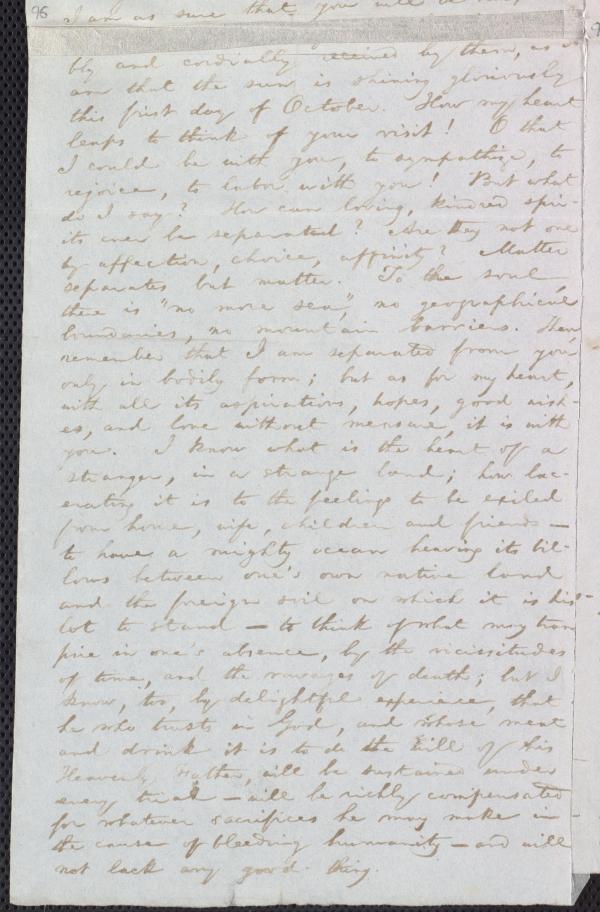 96
I am as sure that you will be
bly and cordially received by them, as I
am that the sun is shining gloriously
this first day of October. How my heart
leaps to think of your visit! O that
I could be with you, to sympathise, to
rejoice, to labor with you! But what
do I say? How can loving, kindred spir-
its ever be separated? Are they not one
by affection, choice, affinity? Matter
separates but matter. To the soul
there is "no more sea," no geographical
boundaries, no mountain barriers. Then
remember that I am separated from you
only in bodily form; but as for my heart,
with all its aspirations, hopes, good wish-
es, and love without measure, it is with
you. I know what is the heart of a
stranger, in a strange land; how lac-
erating it is to the feelings to be exiled
from home, wife, children and friends —
to have a mighty ocean heaving its bil-
lows between one's own native land
and the foreign soil on which it is his
lot to stand — to think of what may trans-
pire in one's absence, by the vicissitudes
of time, and the ravages of death; but I
know, too, by delightful experience, that
he who trusts in God, and whose meat
and drink it is to do the will of his
Heavenly Father, will be sustained under
every trial — will be richly compensated
for whatever sacrifices he may make in
the cause of bleeding humanity — and will
not lack any good thing.